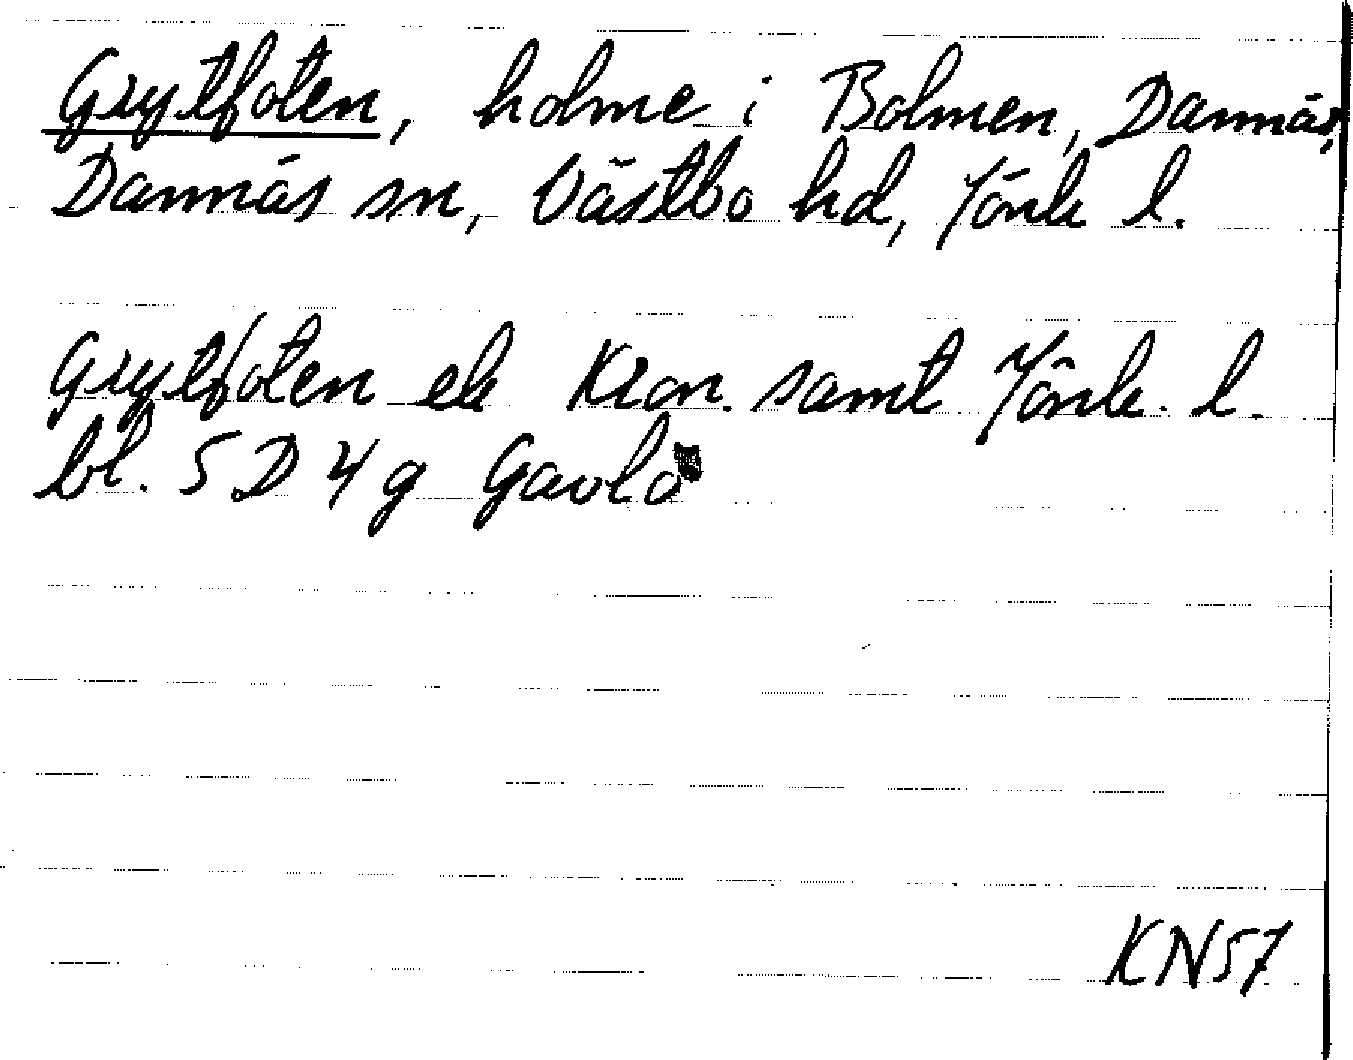 Grytfoten, holme i Bolmen, Dannäs,
Dannäs sn, Västbo hd, Jönk l.
Grytfoten ek Kron. samt Jönk. l.
bl. 5 D 4 g Gavlö
KN57